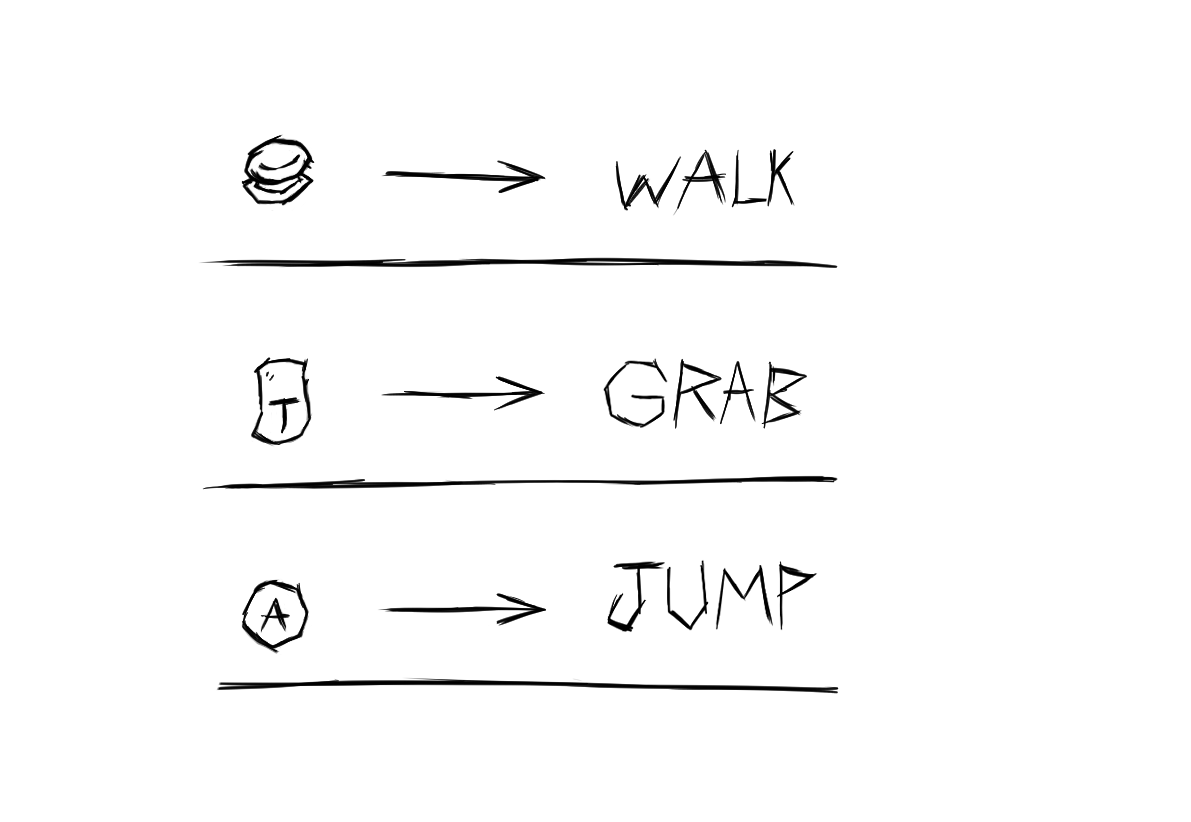 WALK
T GRAB
A JUMP